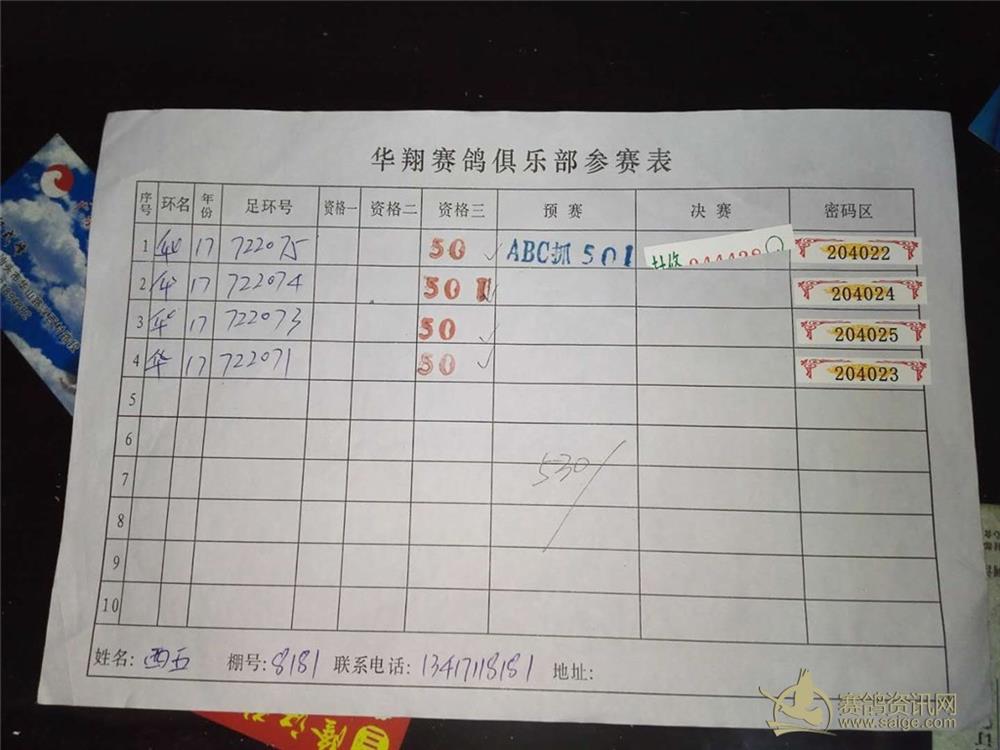 华翔赛鸽俱乐部参赛表
序号 环名 年份 足环号 资格一 资格二 资格三 预赛 决赛 密码区
1 华 17 722075 50 ABC抓 501 204022
2 华 17 722074 50 204024
3 华 17 722073 50 204025
4 华 17 722071 50 204023
5
6
7 530
8
9
10
姓名: 西五 棚号: 8181 联系电话: 13417118181 地址:
赛鸽资讯网
www.saige.com